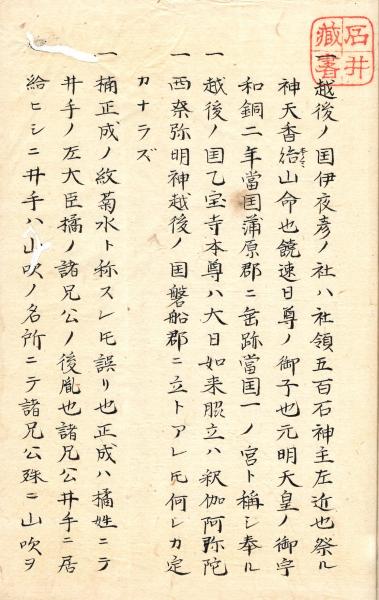 石井藏書
一越後ノ国伊夜彦ノ社ハ社領五百石神主左近也祭ル
神天香山命也饒速日尊ノ御子也元明天皇ノ御宇
和銅二年當国蒲原郡ニ垂跡當国一ノ宮ト称シ奉ル
一越後ノ国乙宝寺本尊ハ大日如来脇立ハ釈伽阿弥陀
一西奈弥明神越後ノ国磐船郡ニ立トアレ𪜈何レカ定
カナラズ
一楠正成ノ紋菊水ト称スレ𪜈誤リ也正成ハ橘姓ニテ
井手ノ左大臣橘ノ諸兄公ノ後胤也諸兄公井手ニ居
給ヒシニ井手ハ山吹ノ名所ニテ諸兄公殊ニ山吹ヲ